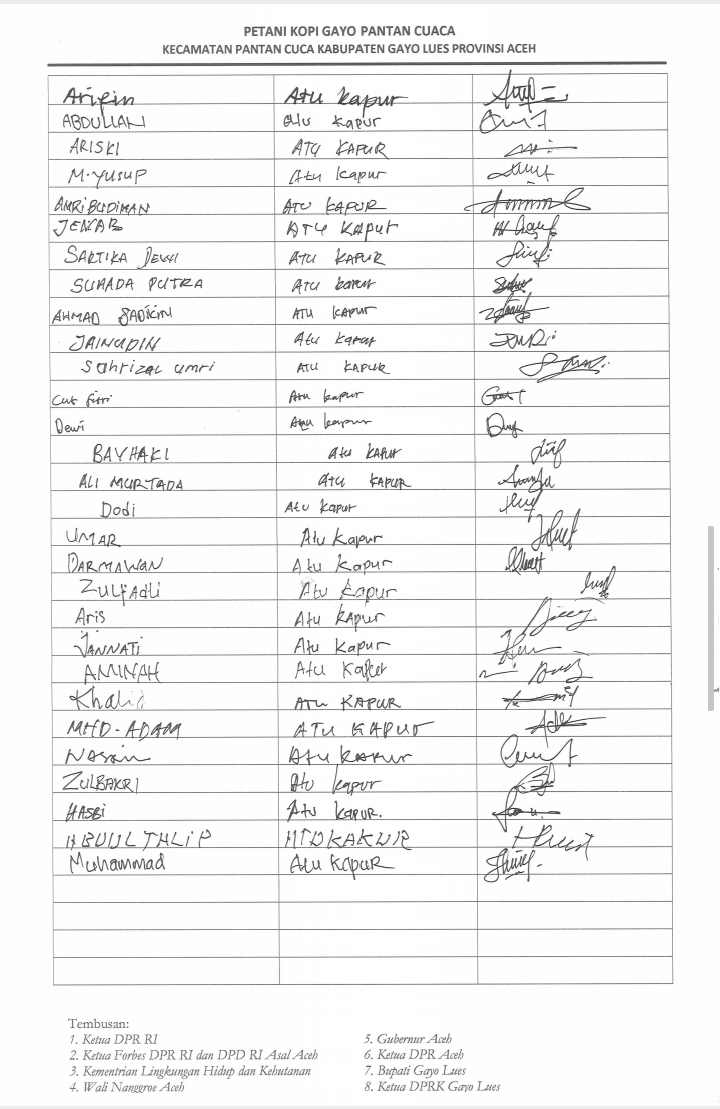 PETANI KOPI GAYO PANTAN CUACA
KECAMATAN PANTAN CUCA KABUPATEN GAYO LUES PROVINSI ACEH
Arifin Atu kapur
ABDULLAH Atu kapur
ARISKI ATU KAPUR
M.YUSUP Atu kapur
AMRI BUDIMAN ATU KAPUR
JENAB ATU KAPUR
SARTIKA DEWI ATU KAPUR
SUHADA PUTRA ATU KAPUR
AHMAD SADIKIN ATU KAPUR
JAINUDIN Atu kapur
Sahrizal umri ATU KAPUR
Cut fitri Atu kapur
Dewi Atu kapur
BAYHAKI Atu KAPUR
ALI MURTADA ATU KAPUR
Dodi Atu kapur
UMAR Atu Kapur
DARMAWAN Atu Kapur
Zulfadli Atu kapur
Aris Atu kapur
JANNATI Atu Kapur
AMINAH Atu
Khalid ATU KAPUR
MHD-ADAM ATU KAPUR
Atu KAPUR
ZULBAKRI Atu kapur
HASBI Atu kapur.
Muhammad Atu Kapur
Tembusan:
1. Ketua DPR RI
2. Ketua Forbes DPR RI dan DPD RI Asal Aceh
3. Kementrian Lingkungan Hidup dan Kehutanan
4. Wali Nanggroe Aceh
5. Gubernur Aceh
6. Ketua DPR Aceh
7. Bupati Gayo Lues
8. Ketua DPRK Gayo Lues